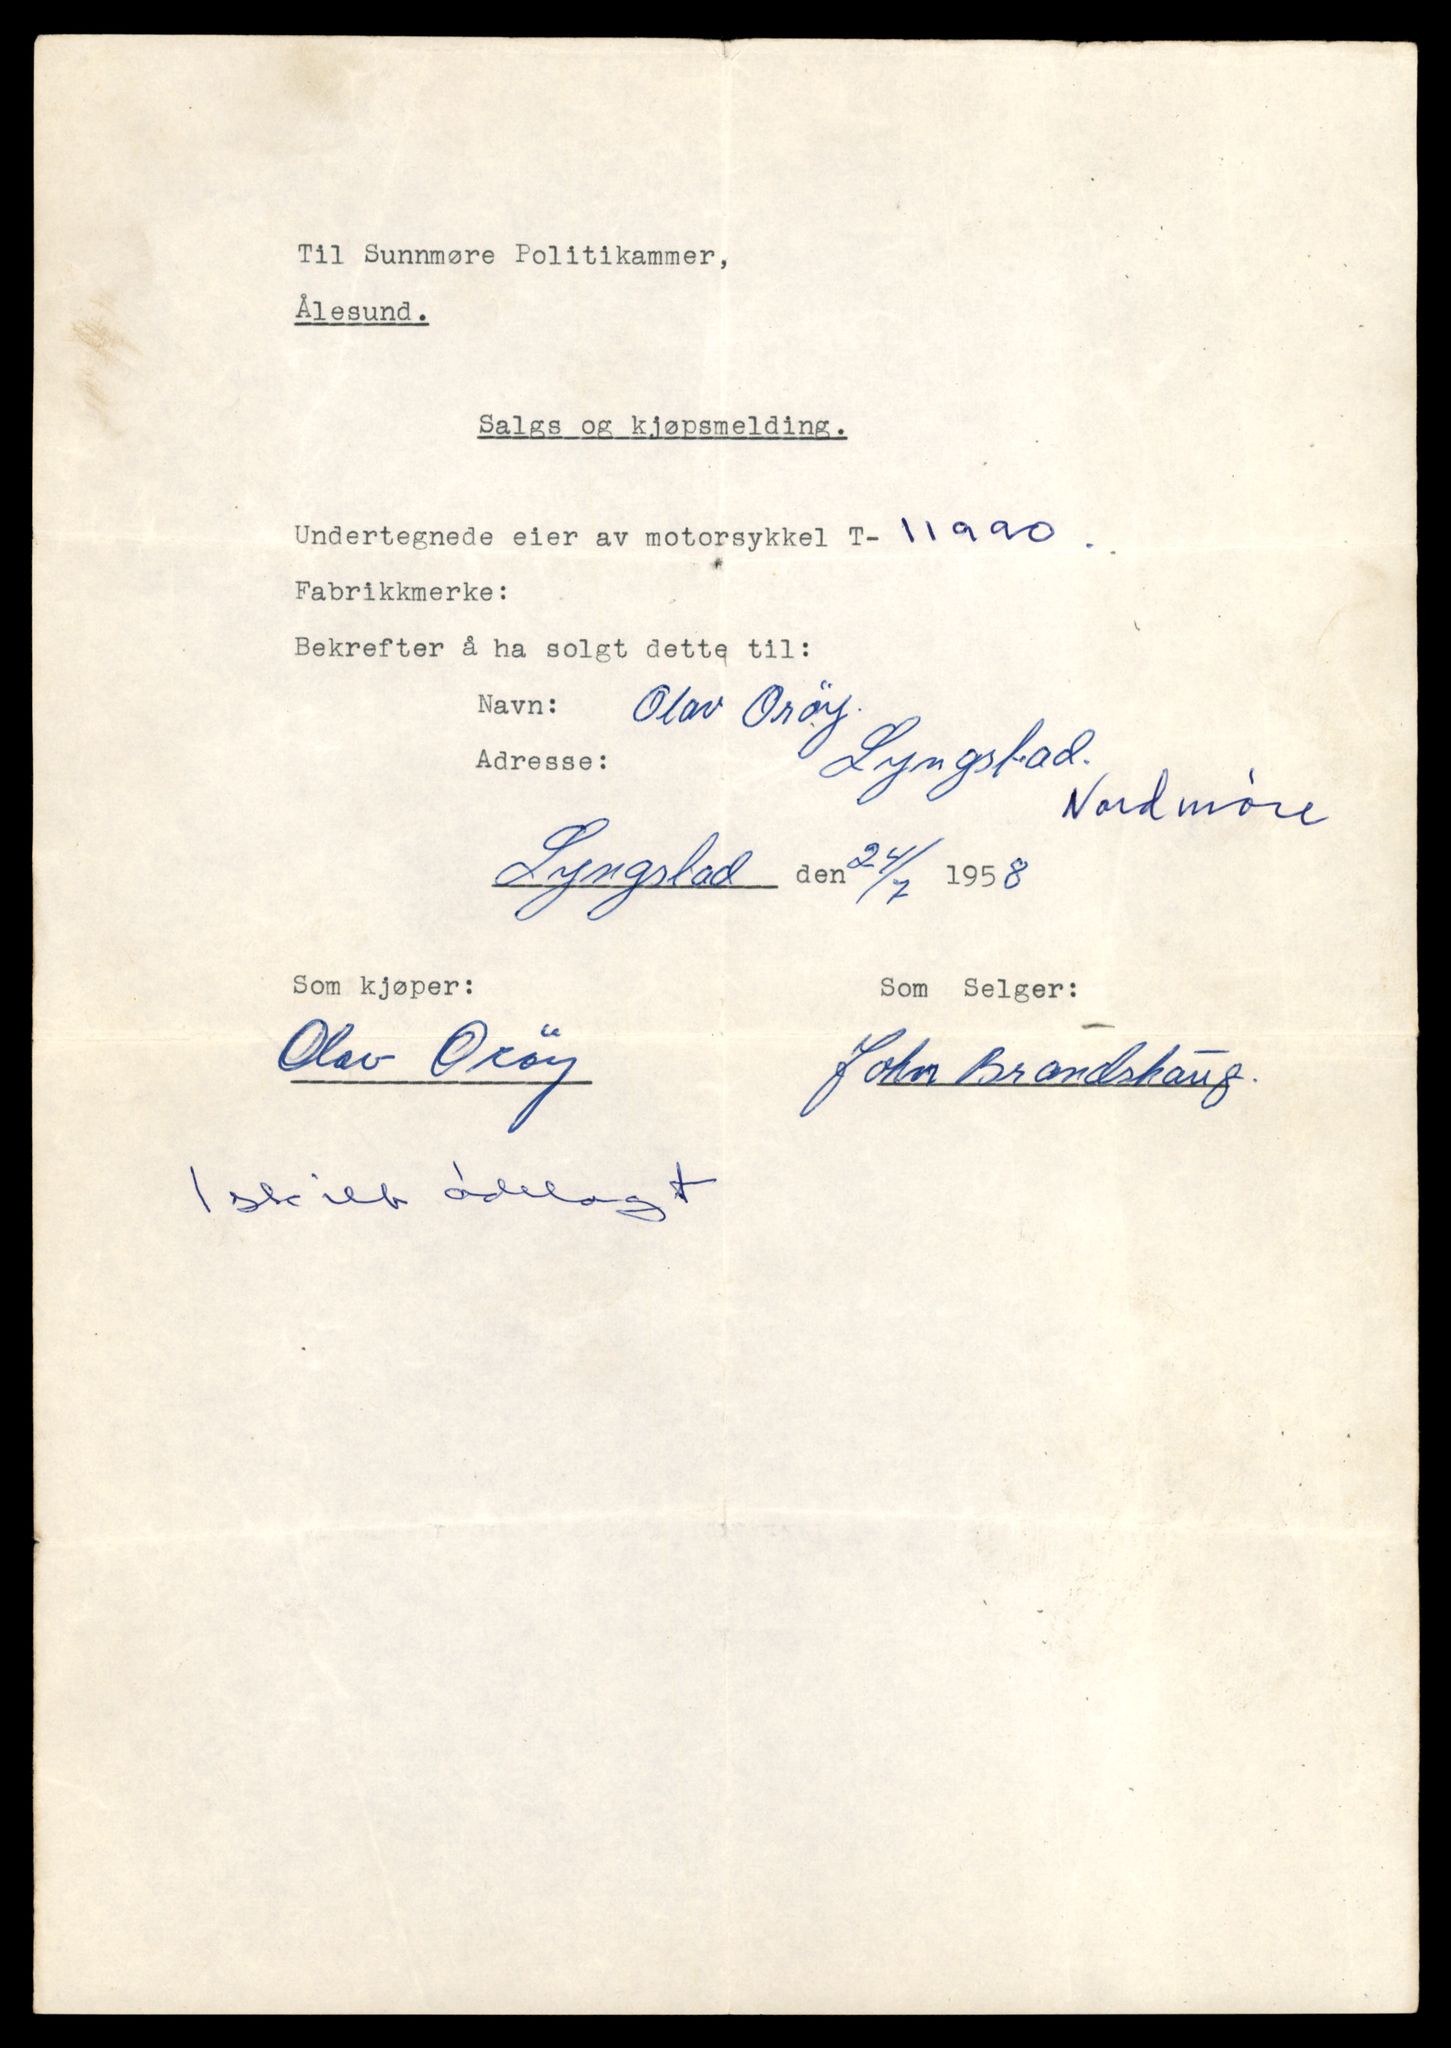 Til Sunnmøre Politikammer,
Ålesund.
Salgs og kjøpsmelding.
Undertegnede eier av motorsykkel T- 11990.
Fabrikkmerke:
Bekrefter å ha solgt dette til:
Navn: Olav Oröy.
Adresse: Lyngstad.
Nordmöre
Lyngstad den 24/7 1958
Som kjøper: Som Selger:
Olav Oröy John Brandshaug.
1 skilt ödelagt